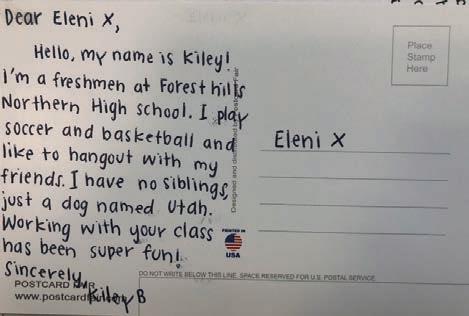 Dear Eleni X,
Hello, my name is Kiley!
I'm a freshmen at Forest hills
Northern High school. I play
soccer and basketball and
like to hangout with my
friends. I have no siblings,
just a dog named Utah.
Working with your class
has been super fun!
Sincerely,
Kiley B
POSTCARD FAIR
www.postcardfair.com
Designed and distributed by Postcard Fair
Place
Stamp
Here
Eleni X
PRINTED IN
USA
DO NOT WRITE BELOW THIS LINE. SPACE RESERVED FOR U.S. POSTAL SERVICE.